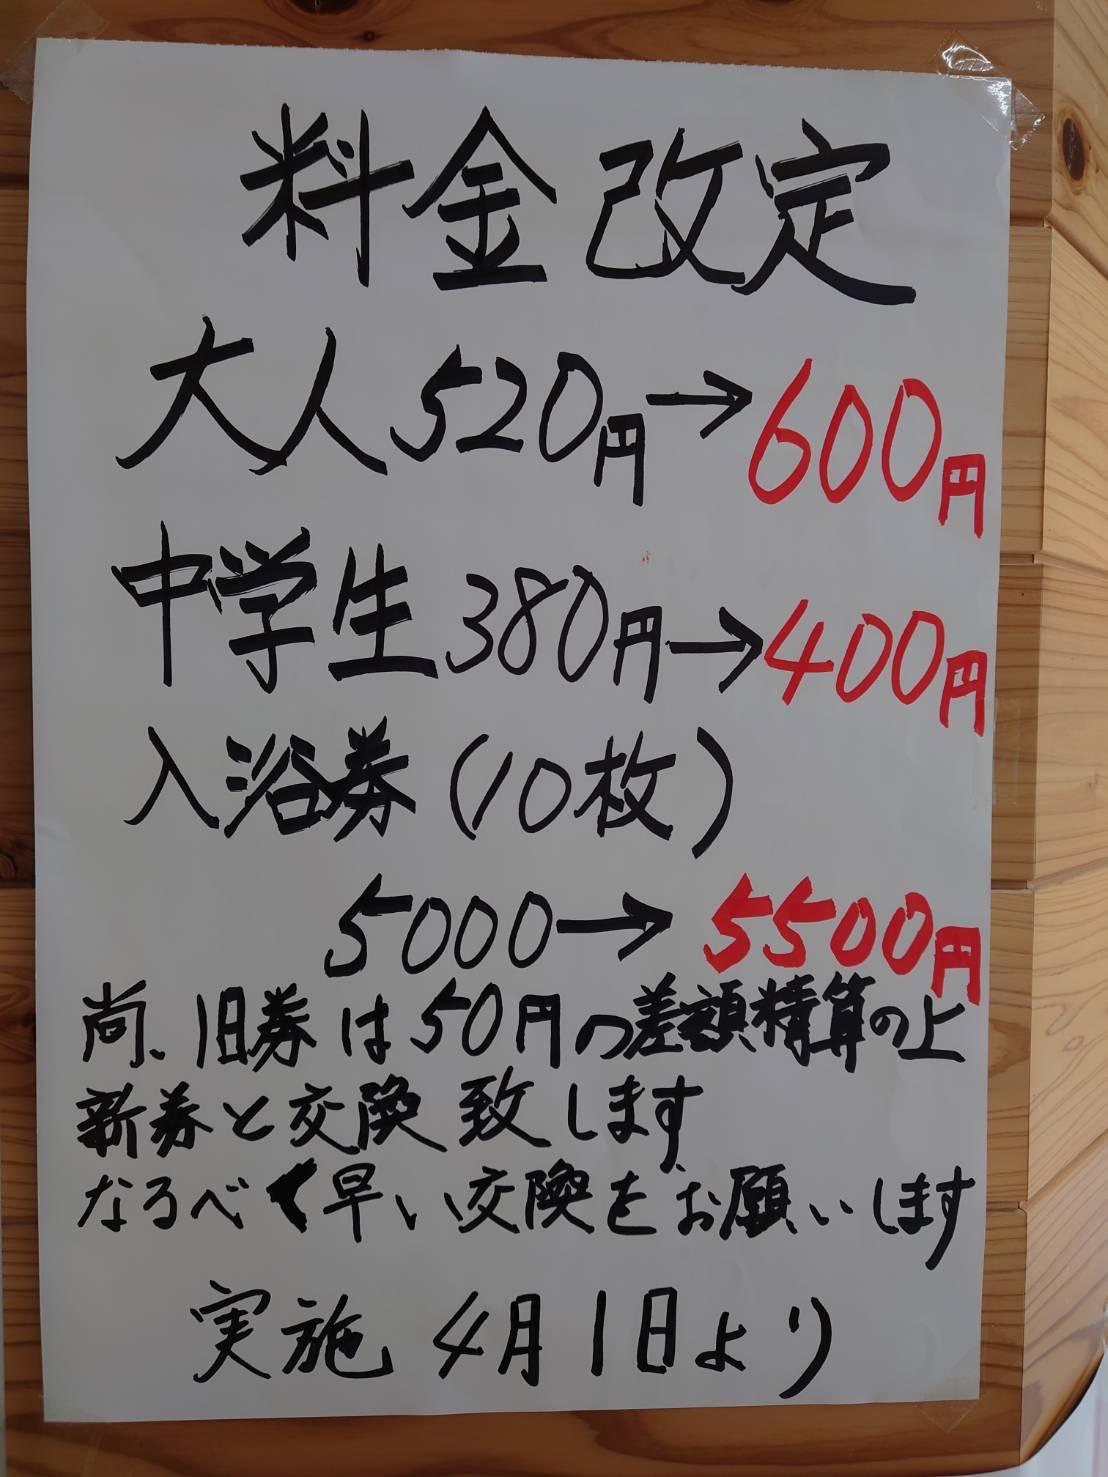 料金改定
大人520円→600円
中学生380円→400円
入浴券(10枚)
5000→5500円
尚、旧券は50円の差額精算の上
新券と交換致します
なるべく早い交換をお願いします
実施 4月1日より